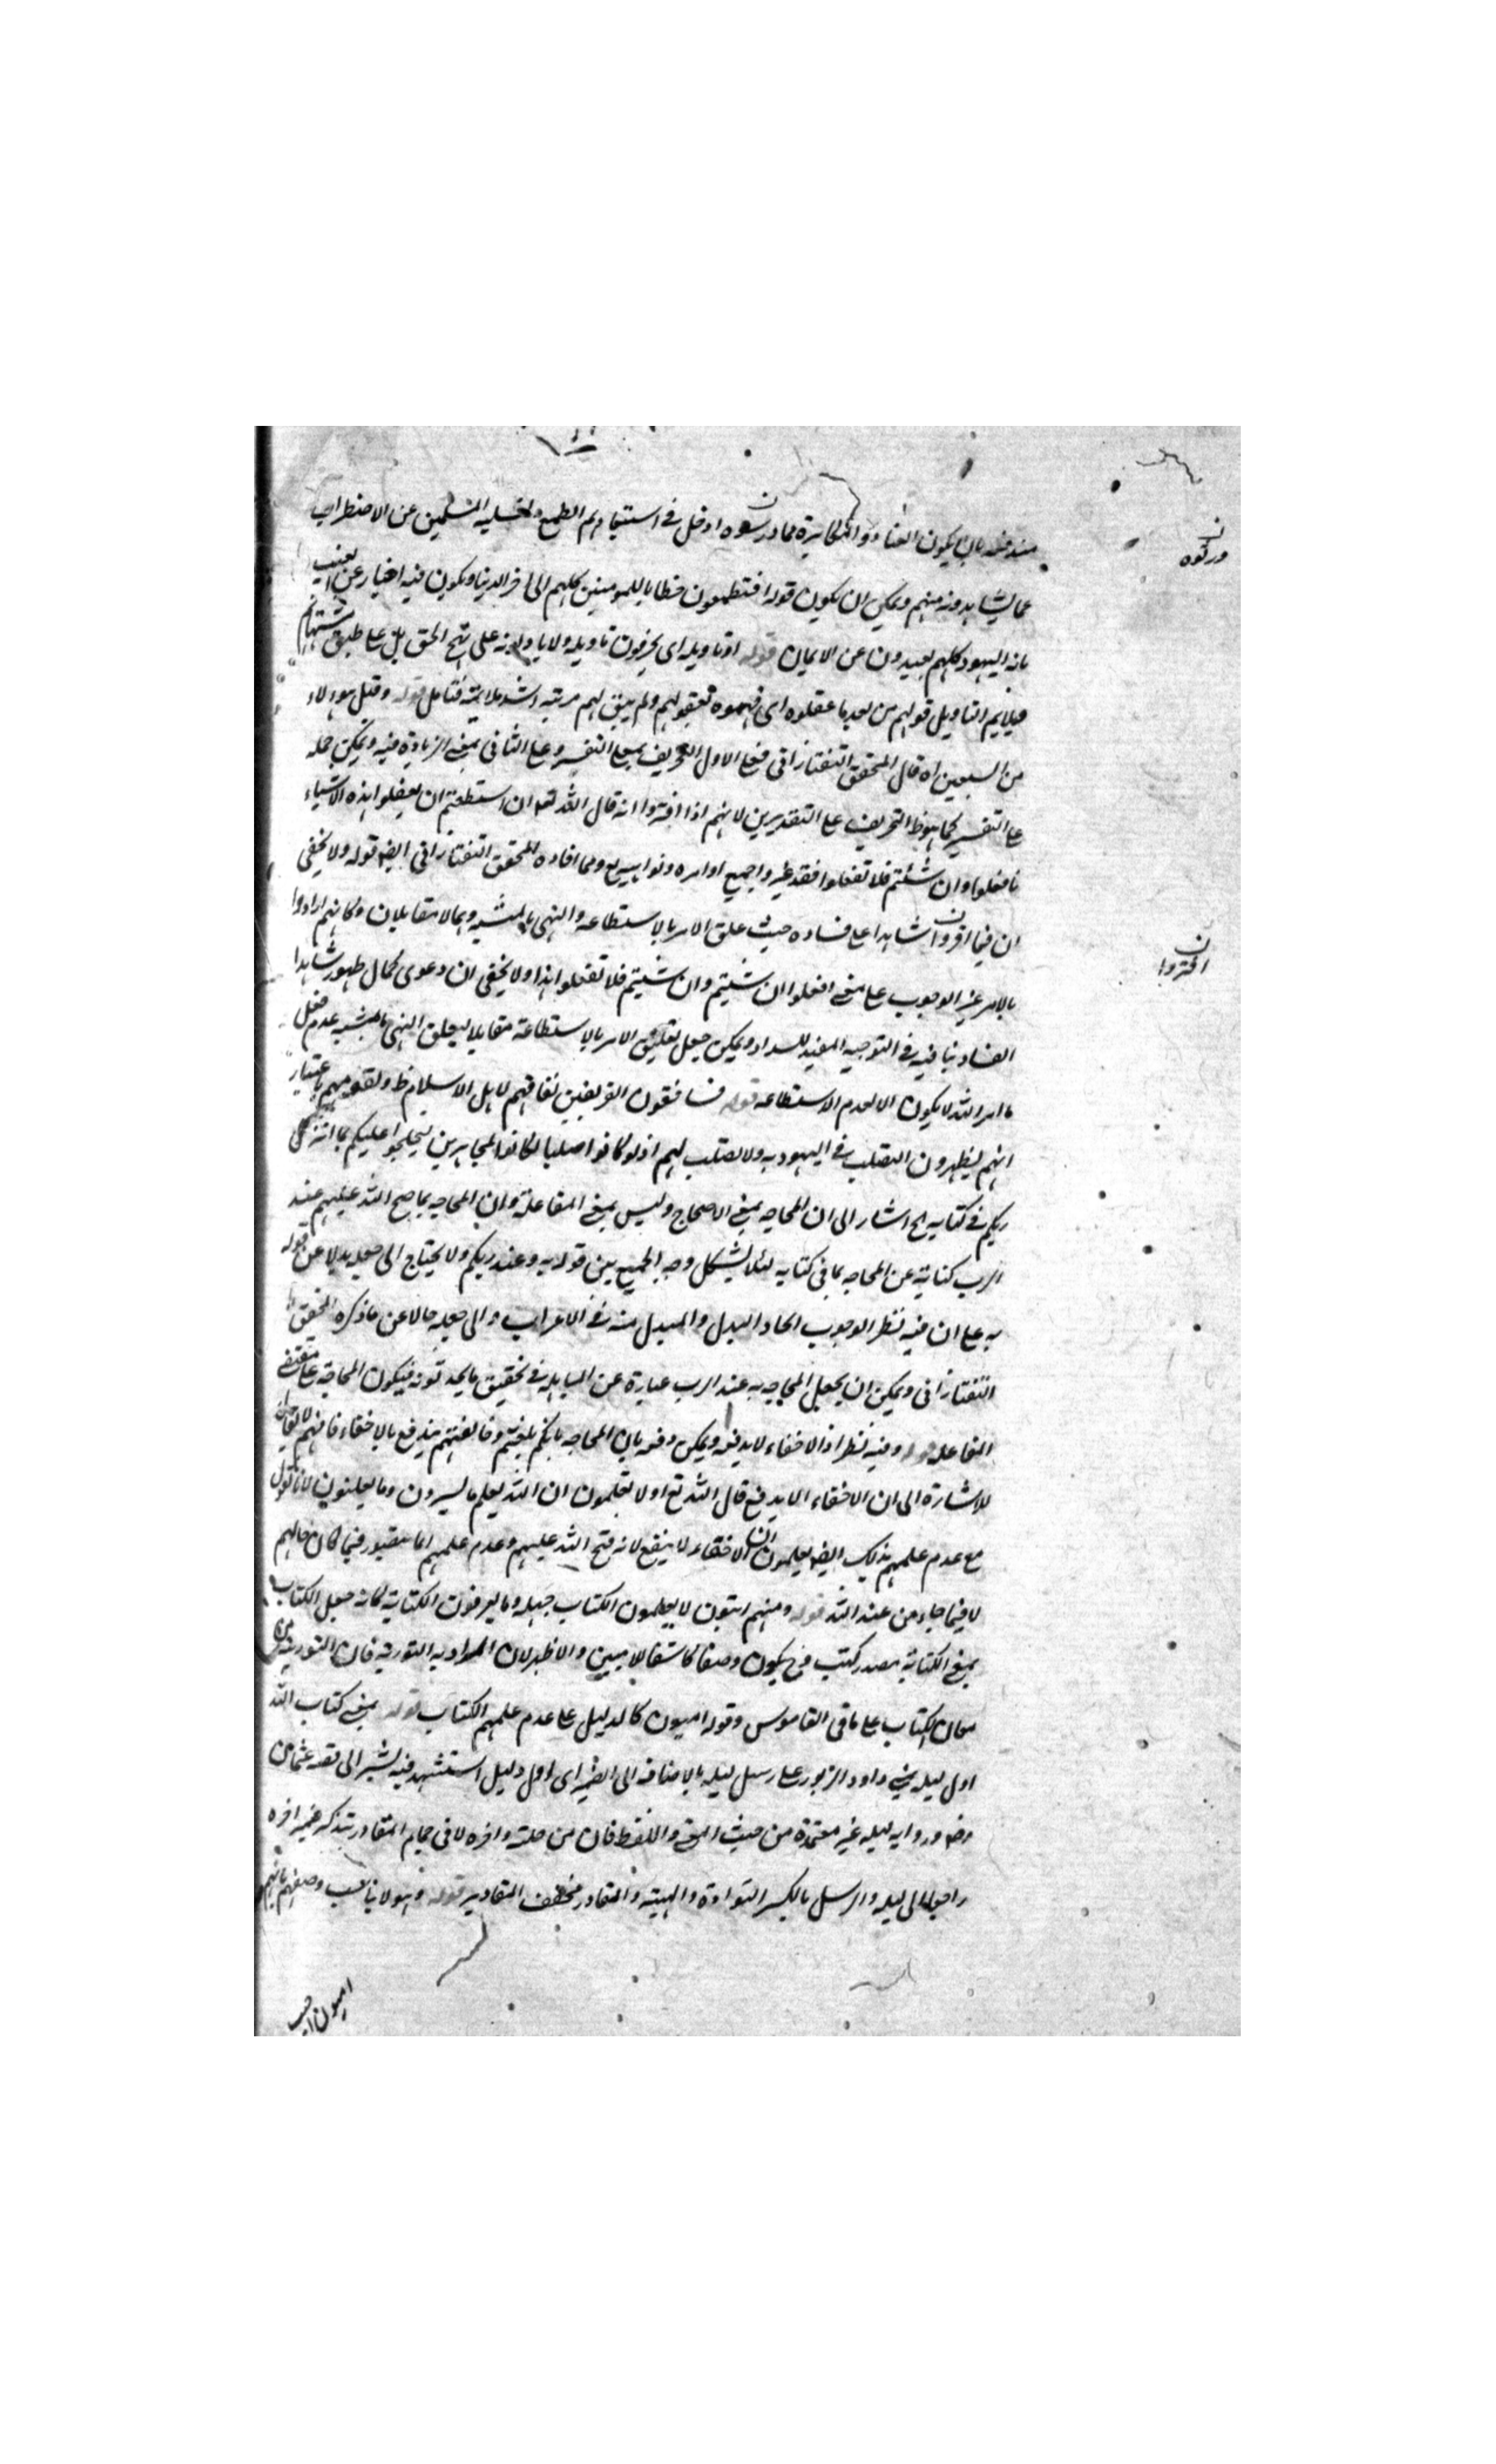 مندفعه بان يكون العناد والمكابرة مما درسوه ادخل في استبعادهم الطمع وتسلية المسلمين عن الاضطراب
دركوه
عما يشاهدونه منهم ويمكن ان يكون قوله افتطمعون خطابا للمومنين كلهم الى اخر الدنيا ويكون فيه اخبار عن الغيب
بانه اليهود كلهم بعيدون عن الايمان قوله او تاويله اى يحرفون تاويله ولا ياولونه على نهج الحق بل على طبق
فيلايم التاويل قولهم من بعد ما عقلوه اى فهموه بعقولهم ولم يبق لهم مرتبه فتامل قوله وقيل هولاء
من السبعين اه قال المحقق التفتازانى فعلى الاول التحريف بمعنى التغيير وعلى الثانى بمعنى الزيادة فيه ويمكن حمله
على التفسير كما هو ظ التحريف على التقديرين لانهم اذا افتروا انه قال الله تعالى ان استطعتم ان تفعلوا هذه الاشياء
فافعلوا وان شئتم فلا تفعلوا فقد غيروا جميع اوامره ونواهيه ومما افاده المحقق التفتازانى ايضا قوله ولا يخفى
ان فيما افتروا شاهدا على فساده حيث علق الامر بالاستطاعه والنهى بالمشيه وهما لا متقابلان وكانهم ارادوا
افتروا
بالامر غير الوجوب على معنى افعلوا ان شئتم وان شئتم فلا تفعلوا هذا ولا يخفى ان دعوى كمال ظهور شاهد
الفساد ينافيه في التوجيه المفيد للسداد ويمكن جعل تعليق الامر بالاستطاعة مقابلا لتعلق النهى بالمشيه عدم فعل
ما امر الله لا يكون الا لعدم الاستطاعه قوله فسافقون الفريقين نفاقهم لاهل الاسلام ظ ولقومهم باعتبار
انهم يظهرون التصلب في اليهوديه ولا تصلب لهم اذ لو كانوا صلبا لكانوا مجاهرين ليحاجوا عليكم بما انزل
ربكم في كتابه الخ اشار الى ان المحاجه بمعنى الاحتجاج وليس بمعنى المفاعلة وان المحاجه بما فتح الله عليهم عند
الرب كناية عن المحاجه بما في كتابه لئلا يشكل وجه الجمع بين قوله به وعند ربكم ولا يحتاج الى جعله بدلا عن قوله
به على ان فيه نظرا لوجوب اتحاد البدل والمبدل منه في الاعراب والى جعله حالا عن ما ذكره المحقق
التفتازانى ويمكن ان يجعل المحاجه به عند الرب عبارة عن المباهله في تحقيق ما يحدثونه فيكون المحاجه على مقتضى
المفاعله قوله وفيه نظر اذ الاخفاء لا يدفعه ويمكن دفعه بان المحاجه بانكم بلغتم وخالفتم يندفع بالاخفاء فافهم لا يقال
للاشارة الى ان الاخفاء لا يدفع قال الله تع اولا تعلمون ان الله يعلم ما يسرون وما يعلنون لانا نقول
مع عدم علمهم بذلك ايضا يعلمون ان الاخفاء لا ينفع لانه فتح الله عليهم وعدم علمهم انما يتصور فيما كان حالهم
لا فيما جاء من عند الله قوله ومنهم اميون لا يعلمون الكتاب جهله وما يعرفون الكتابة كانه جعل الكتاب
بمعنى الكتابة مصدر كتب فح يكون وصفا كاشفا للاميين والاظهر لان المراد به التورية فان التورية من
معانى الكتاب على ما في القاموس وقوله اميون كالدليل على عدم علمهم الكتاب قوله بمعنى كتاب الله
اول ليله تمنى داود الزبور على رسل ليله بالاضافه الى الضمير اى اول دليل استشهد فيه يشير الى قصه عثمان
رضه وروايه ليله غير معتمدة من حيث المعنى واللفظ فان من جملته واخره لاقى حمام المقادر بتذكير ضمير اخره
راجعا الى ليله والرسل بالكسر التوادة والهينة والمقادر مخفف المقادير قوله وهو لا يناسب وصفهم بانهم
اميون اجيب